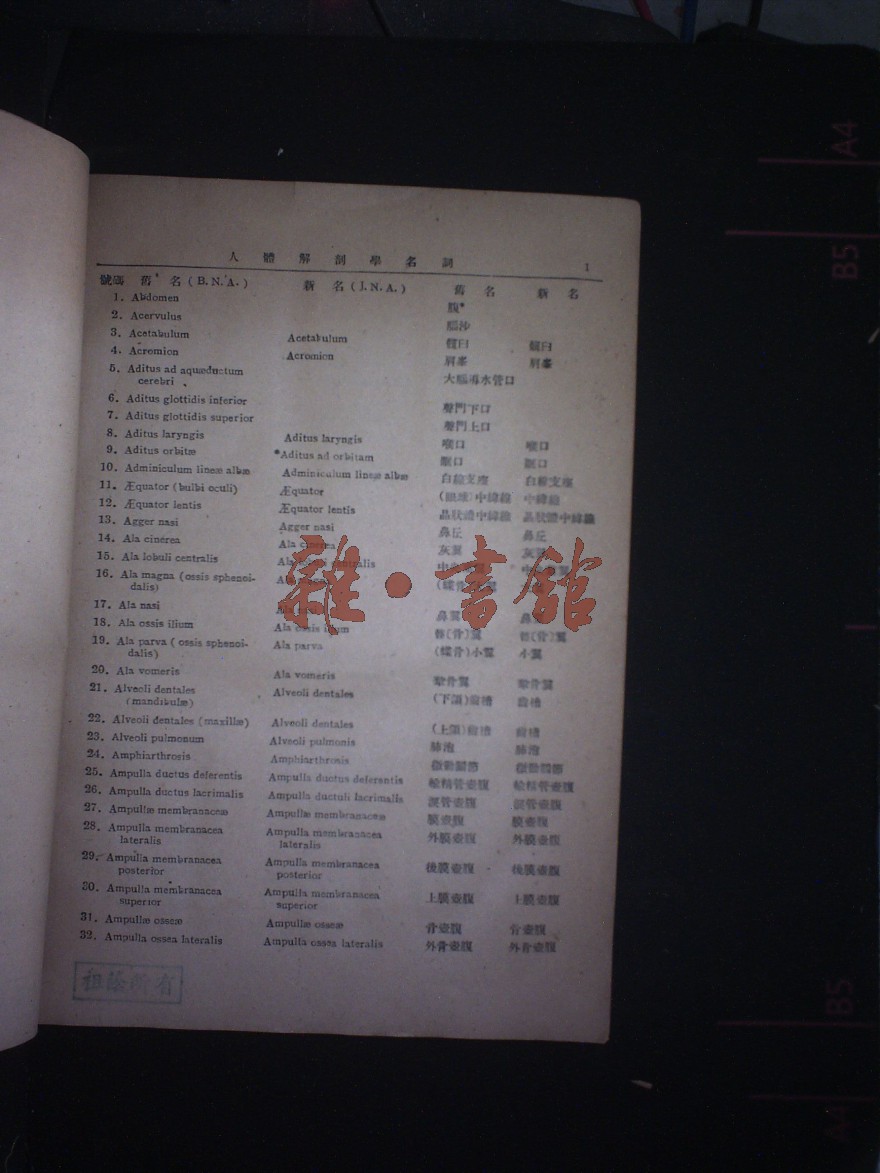 人體解剖學名詞 1
號碼 舊名(B.N.A.) 新名(J.N.A.) 舊名 新名
1. Abdomen 腹*
2. Acervulus 腦沙
3. Acetabulum Acetabulum 髖臼 髖臼
4. Acromion Acromion 肩峯 肩峯
5. Aditus ad aquæductum 大腦導水管口
cerebri
6. Aditus glottidis inferior 聲門下口
7. Aditus glottidis superior 聲門上口
8. Aditus laryngis Aditus laryngis 喉口 喉口
9. Aditus orbitæ *Aditus ad orbitam 眶口 眶口
10. Adminiculum lineæ albæ Adminiculum lineæ albæ 白線支座 白線支座
11. Æquator (bulbi oculi) Æquator (眼球)中緯線 中緯線
12. Æquator lentis Æquator lentis 晶狀體中緯線 晶狀體中緯線
13. Agger nasi Agger nasi 鼻丘 鼻丘
14. Ala cinerea Ala cinerea 灰翼 灰翼
15. Ala lobuli centralis
16. Ala magna (ossis sphenoi-
dalis)
17. Ala nasi 鼻翼
18. Ala ossis ilium Ala ossis ilium 髂(骨)翼 髂(骨)翼
19. Ala parva (ossis sphenoi- Ala parva (蝶骨)小翼 小翼
dalis)
20. Ala vomeris Ala vomeris 犂骨翼 犂骨翼
21. Alveoli dentales Alveoli dentales (下頜)齒槽 齒槽
(mandibulæ)
22. Alveoli dentales (maxillæ) Alveoli dentales (上頜)齒槽 齒槽
23. Alveoli pulmonum Alveoli pulmonis 肺泡 肺泡
24. Amphiarthrosis Amphiarthrosis 微動關節 微動關節
25. Ampulla ductus deferentis Ampulla ductus deferentis 輸精管壺腹 輸精管壺腹
26. Ampulla ductus lacrimalis Ampulla ductuli lacrimalis 淚管壺腹 淚管壺腹
27. Ampullæ membranaceæ Ampullæ membranaceæ 膜壺腹 膜壺腹
28. Ampulla membranacea Ampulla membranacea 外膜壺腹 外膜壺腹
lateralis lateralis
29. Ampulla membranacea Ampulla membranacea 後膜壺腹 後膜壺腹
posterior posterior
30. Ampulla membranacea Ampulla membranacea 上膜壺腹 上膜壺腹
superior superior
31. Ampullæ osseæ Ampullæ osseæ 骨壺腹 骨壺腹
32. Ampulla ossea lateralis Ampulla ossea lateralis 外骨壺腹 外骨壺腹
雜·書館
所有
A4
B5
B5
A4